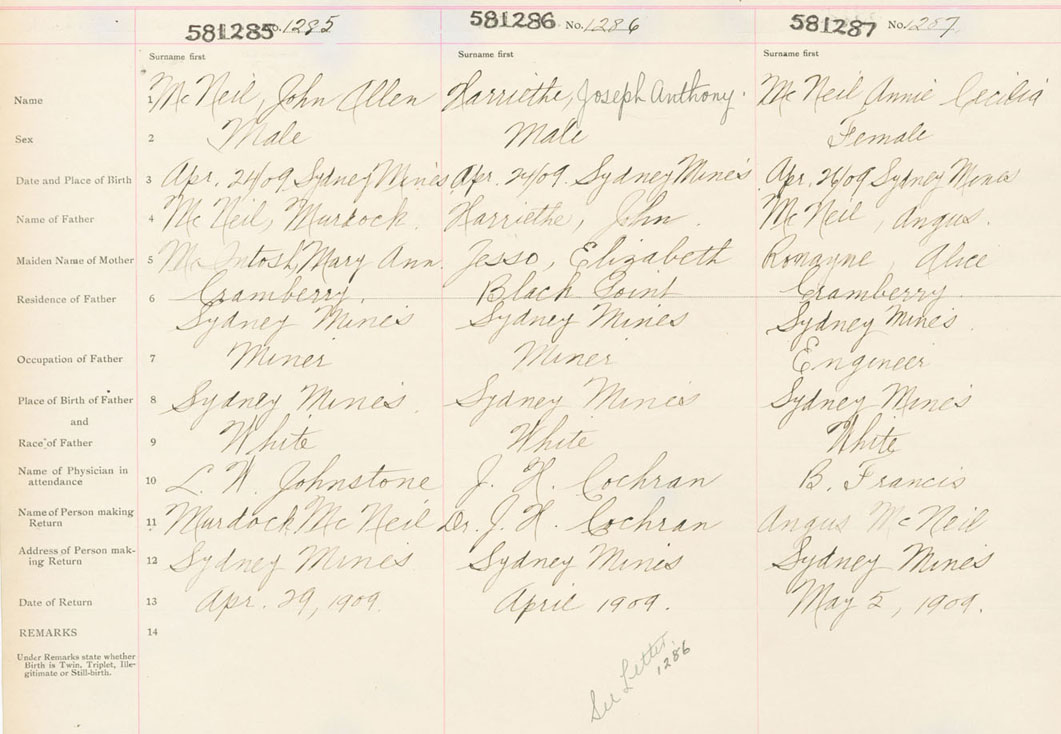 581285 No. 1285 581286 No. 1286 581287 No. 1287
Surname first Surname first Surname first
Name 1 McNeil, John Allen Harriethe, Joseph Anthony. McNeil Annie Cecilia
Sex 2 Male Male Female
Date and Place of Birth 3 Apr. 24/09 Sydney Mines Apr. 24/09. Sydney Mines Apr. 26/09 Sydney Mines
Name of Father 4 McNeil, Murdock. Harriethe, John. McNeil, Angus.
Maiden Name of Mother 5 McIntosh, Mary Ann. Jesso, Elizabeth Ronayne, Alice
Residence of Father 6 Cramberry. Black Point Cramberry
Sydney Mines Sydney Mines Sydney Mines.
Occupation of Father 7 Miner Miner Engineer
Place of Birth of Father 8 Sydney Mines. Sydney Mines Sydney Mines
and
Race of Father 9 White White White
Name of Physician in
attendance 10 L. W. Johnstone J. H. Cochran B. Francis
Name of Person making
Return 11 Murdock McNeil Dr. J. H. Cochran Angus McNeil
Address of Person mak-
ing Return 12 Sydney Mines Sydney Mines Sydney Mines
Date of Return 13 Apr. 29, 1909. April 1909. May 5, 1909.
REMARKS 14
Under Remarks state whether
Birth is Twin, Triplet, Ille-
gitimate or Still-birth.
See Letter.
1286